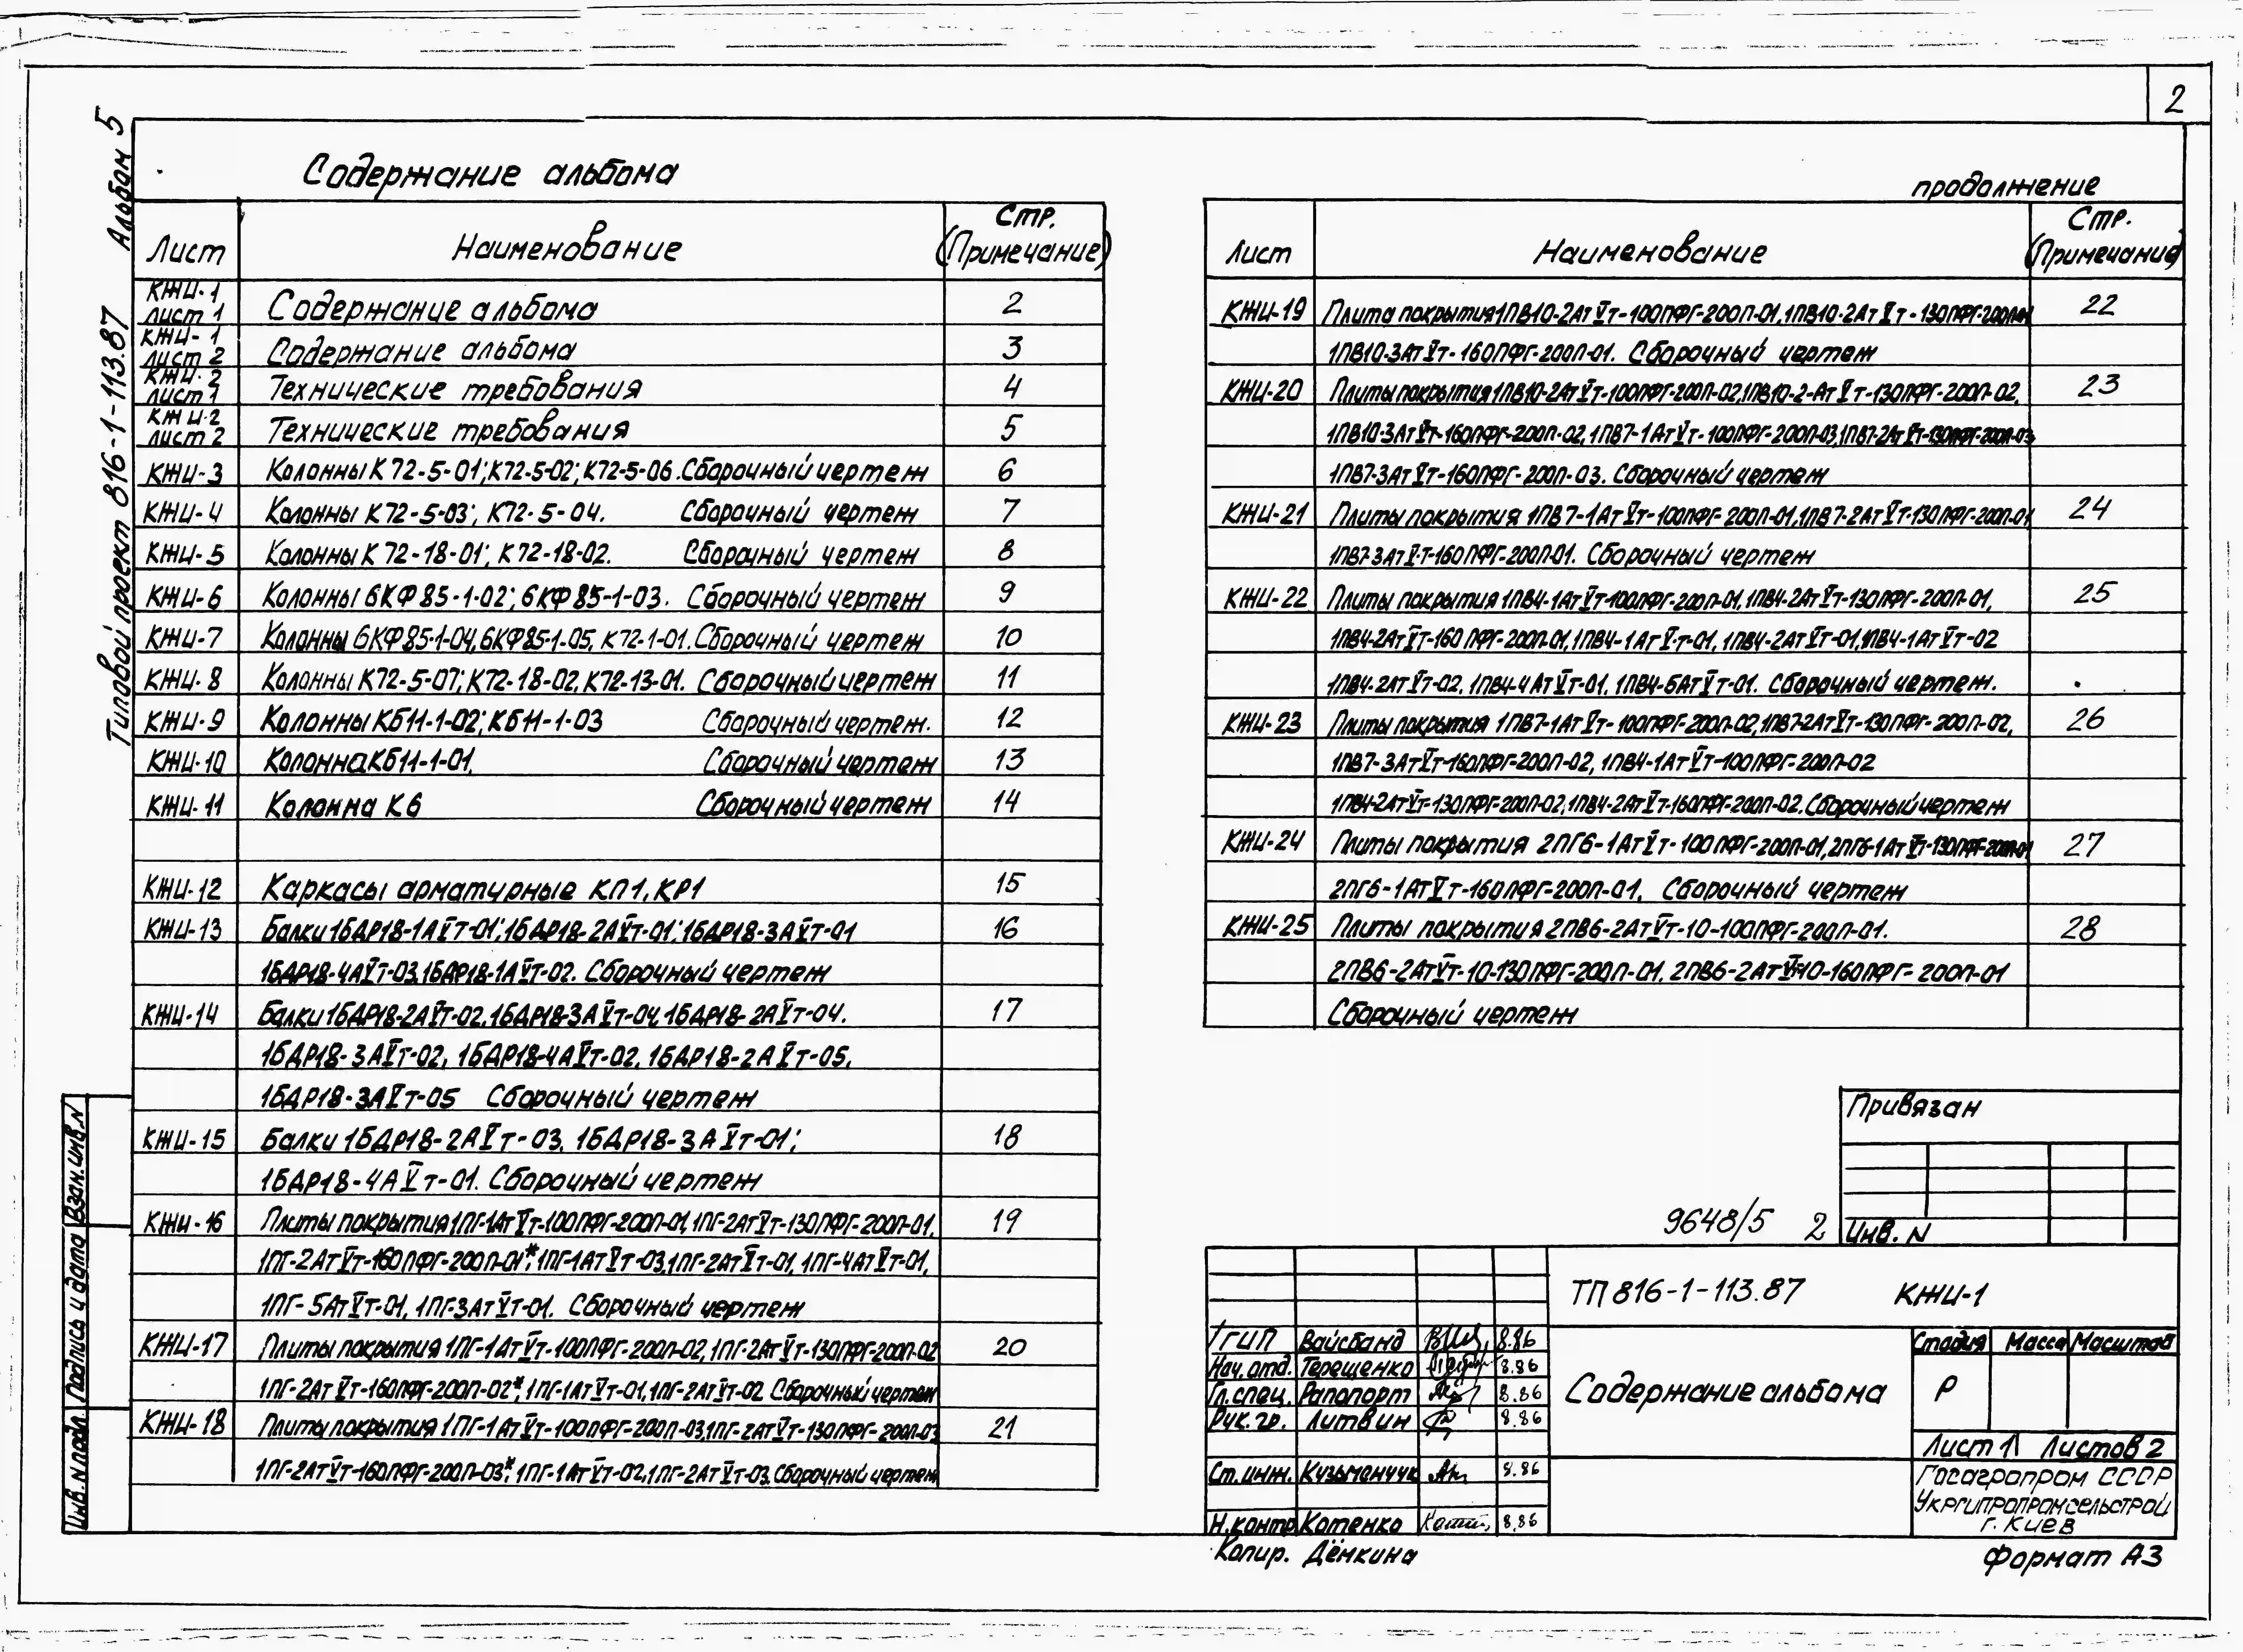 2
Типовой проект 816-1-113.87 Альбом 5
Содержание альбома
Лист Наименование Стр. (Примечание)
КЖИ-1 лист 1 Содержание альбома 2
КЖИ-1 лист 2 Содержание альбома 3
КЖИ-2 лист 1 Технические требования 4
КЖИ-2 лист 2 Технические требования 5
КЖИ-3 Колонны К72-5-01; К72-5-02; К72-5-06. Сборочный чертеж 6
КЖИ-4 Колонны К72-5-03; К72-5-04. Сборочный чертеж 7
КЖИ-5 Колонны К72-18-01; К72-18-02. Сборочный чертеж 8
КЖИ-6 Колонны 6КФ85-1-02; 6КФ85-1-03. Сборочный чертеж 9
КЖИ-7 Колонны 6КФ85-1-04, 6КФ85-1-05, К72-1-01. Сборочный чертеж 10
КЖИ-8 Колонны К72-5-07; К72-18-02, К72-13-01. Сборочный чертеж 11
КЖИ-9 Колонны КБ11-1-02; КБ11-1-03 Сборочный чертеж. 12
КЖИ-10 Колонна КБ11-1-01. Сборочный чертеж 13
КЖИ-11 Колонна К6 Сборочный чертеж 14
КЖИ-12 Каркасы арматурные КП1, КР1 15
КЖИ-13 Балки 1БДР18-1АⅤт-01; 1БДР18-2АⅤт-01; 1БДР18-3АⅤт-01 16
1БДР18-4АⅤт-03, 1БДР18-1АⅤт-02. Сборочный чертеж
КЖИ-14 Балки 1БДР18-2АⅤт-02, 1БДР18-3АⅤт-04, 1БДР18-2АⅤт-04. 17
1БДР18-3АⅤт-02, 1БДР18-4АⅤт-02, 1БДР18-2АⅤт-05,
1БДР18-3АⅤт-05 Сборочный чертеж
КЖИ-15 Балки 1БДР18-2АⅤт-03, 1БДР18-3АⅤт-01; 18
1БДР18-4АⅤт-01. Сборочный чертеж
КЖИ-16 Плиты покрытия 1ПГ-1АтⅤт-100ПФГ-200П-01, 1ПГ-2АтⅤт-130ПФГ-200П-01, 19
1ПГ-2АтⅤт-160ПФГ-200П-01*; 1ПГ-1АтⅤт-03, 1ПГ-2АтⅤт-01, 1ПГ-4АтⅤт-01,
1ПГ-5АтⅤт-01, 1ПГ-3АтⅤт-01. Сборочный чертеж
КЖИ-17 Плиты покрытия 1ПГ-1АтⅤт-100ПФГ-200П-02, 1ПГ-2АтⅤт-130ПФГ-200П-02 20
1ПГ-2АтⅤт-160ПФГ-200П-02*, 1ПГ-1АтⅤт-01, 1ПГ-2АтⅤт-02 Сборочный чертеж
КЖИ-18 Плиты покрытия 1ПГ-1АтⅤт-100ПФГ-200П-03, 1ПГ-2АтⅤт-130ПФГ-200П-03 21
1ПГ-2АтⅤт-160ПФГ-200П-03*, 1ПГ-1АтⅤт-02, 1ПГ-2АтⅤт-03. Сборочный чертеж
продолжение
Лист Наименование Стр. (Примечание)
КЖИ-19 Плита покрытия 1ПВ10-2АтⅤт-100ПФГ-200П-01, 1ПВ10-2АтⅤт-130ПФГ-200П-01 22
1ПВ10-3АтⅤт-160ПФГ-200П-01. Сборочный чертеж
КЖИ-20 Плиты покрытия 1ПВ10-2АтⅤт-100ПФГ-200П-02, 1ПВ10-2-АтⅤт-130ПФГ-200П-02, 23
1ПВ10-3АтⅤт-160ПФГ-200П-02, 1ПВ7-1АтⅤт-100ПФГ-200П-03, 1ПВ7-2АтⅤт-130ПФГ-200П-03
1ПВ7-3АтⅤт-160ПФГ-200П-03. Сборочный чертеж
КЖИ-21 Плиты покрытия 1ПВ7-1АтⅤт-100ПФГ-200П-01, 1ПВ7-2АтⅤт-130ПФГ-200П-01 24
1ПВ7-3АтⅤ-т-160ПФГ-200П-01. Сборочный чертеж
КЖИ-22 Плиты покрытия 1ПВ4-1АтⅤт-100ПФГ-200П-01, 1ПВ4-2АтⅤт-130ПФГ-200П-01, 25
1ПВ4-2АтⅤт-160ПФГ-200П-01, 1ПВ4-1АтⅤ-т-01, 1ПВ4-2АтⅤт-01, 1ПВ4-1АтⅤт-02
1ПВ4-2АтⅤт-02, 1ПВ4-4АтⅤт-01, 1ПВ4-6АтⅤт-01. Сборочный чертеж.
КЖИ-23 Плиты покрытия 1ПВ7-1АтⅤт-100ПФГ-200П-02, 1ПВ7-2АтⅤт-130ПФГ-200П-02, 26
1ПВ7-3АтⅤт-160ПФГ-200П-02, 1ПВ4-1АтⅤт-100ПФГ-200П-02
1ПВ4-2АтⅤт-130ПФГ-200П-02, 1ПВ4-2АтⅤт-160ПФГ-200П-02. Сборочный чертеж
КЖИ-24 Плиты покрытия 2ПГ6-1АтⅤт-100ПФГ-200П-01, 2ПГ6-1АтⅤт-130ПФГ-200П-01 27
2ПГ6-1АтⅤт-160ПФГ-200П-01. Сборочный чертеж
КЖИ-25 Плиты покрытия 2ПВ6-2АтⅤт-10-100ПФГ-200П-01. 28
2ПВ6-2АтⅤт-10-130ПФГ-200П-01. 2ПВ6-2АтⅤт-10-160ПФГ-200П-01
Сборочный чертеж
Привязан
Инв. N
9648/5 2
ТП 816-1-113.87 КЖИ-1
ГИП Вайсбанд 8.86
Нач. отд. Терещенко 8.86
Гл. спец. Рапопорт 8.86
Рук. гр. Литвин 8.86
Ст. инж. Кузьменчук 8.86
Н. контр Котенко 8.86
Содержание альбома
Стадия Масса Масштаб
Р
Лист 1 Листов 2
Госагропром СССР
Укргипропромсельстрой
г. Киев
Копир. Дёмкина
Формат А3
Инв. N подл. Подпись и дата Взам. инв. N